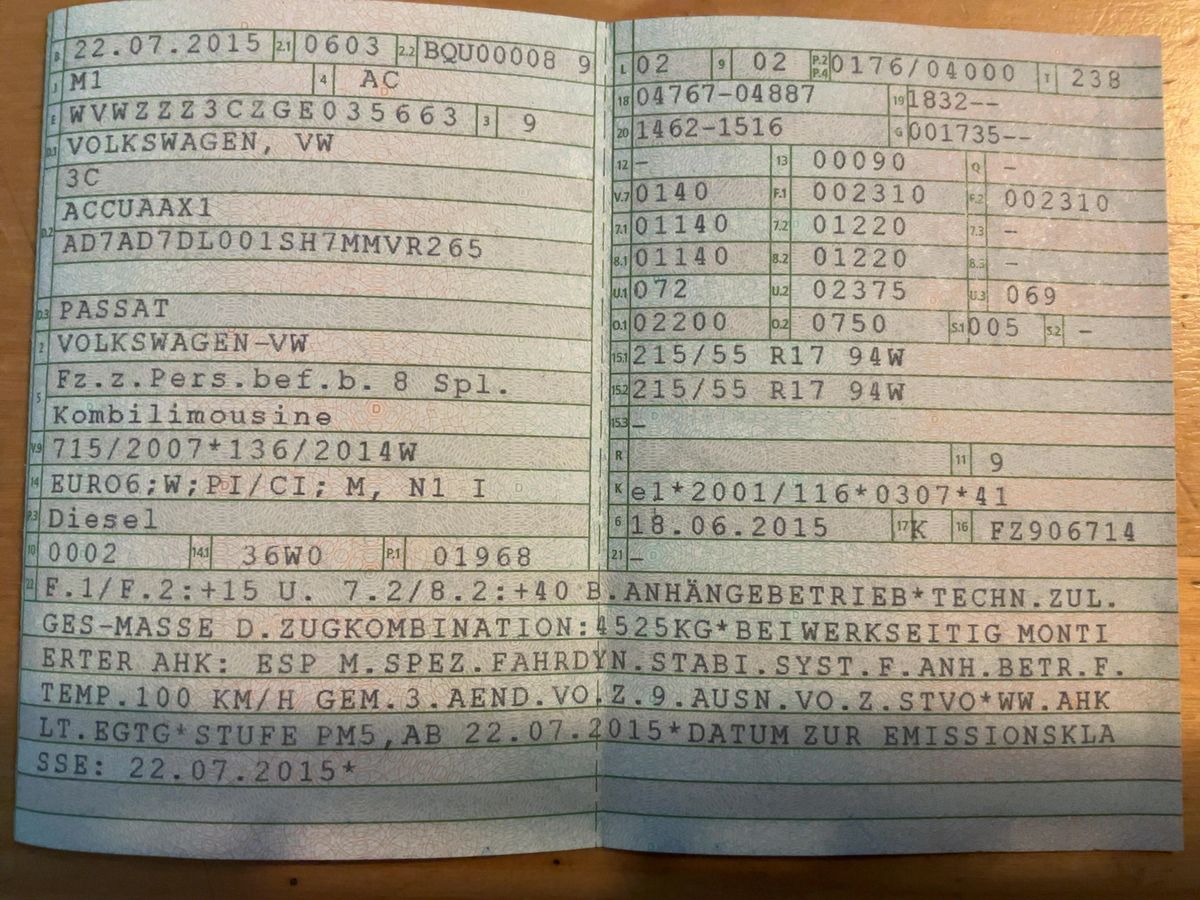 B 22.07.2015 2.1 0603 2.2 BQU00008 9
J M1 4 AC
E WVWZZZ3CZGE035663 3 9
D.1 VOLKSWAGEN, VW
3C
D.2 ACCUAAX1
AD7AD7DL001SH7MMVR265
D.3 PASSAT
2 VOLKSWAGEN-VW
5 Fz.z.Pers.bef.b. 8 Spl.
Kombilimousine
V.9 715/2007*136/2014W
14 EURO6;W;PI/CI; M, N1 I
P.3 Diesel
10 0002 14.1 36W0 P.1 01968
L 02 9 02 P.2 P.4 0176/04000 T 238
18 04767-04887 19 1832--
20 1462-1516 G 001735--
12 - 13 00090 Q -
V.7 0140 F.1 002310 F.2 002310
7.1 01140 7.2 01220 7.3 -
8.1 01140 8.2 01220 8.3 -
U.1 072 U.2 02375 U.3 069
O.1 02200 O.2 0750 S.1 005 S.2 -
15.1 215/55 R17 94W
15.2 215/55 R17 94W
15.3 -
R 11 9
K e1*2001/116*0307*41
6 18.06.2015 17 K 16 FZ906714
21 -
22 F.1/F.2:+15 U. 7.2/8.2:+40 B.ANHÄNGEBETRIEB*TECHN.ZUL.
GES-MASSE D.ZUGKOMBINATION:4525KG*BEI WERKSEITIG MONTI
ERTER AHK: ESP M.SPEZ.FAHRDYN.STABI.SYST.F.ANH.BETR.F.
TEMP.100 KM/H GEM.3.AEND.VO.Z.9.AUSN.VO.Z.STVO*WW.AHK
LT.EGTG*STUFE PM5,AB 22.07.2015*DATUM ZUR EMISSIONSKLA
SSE: 22.07.2015*